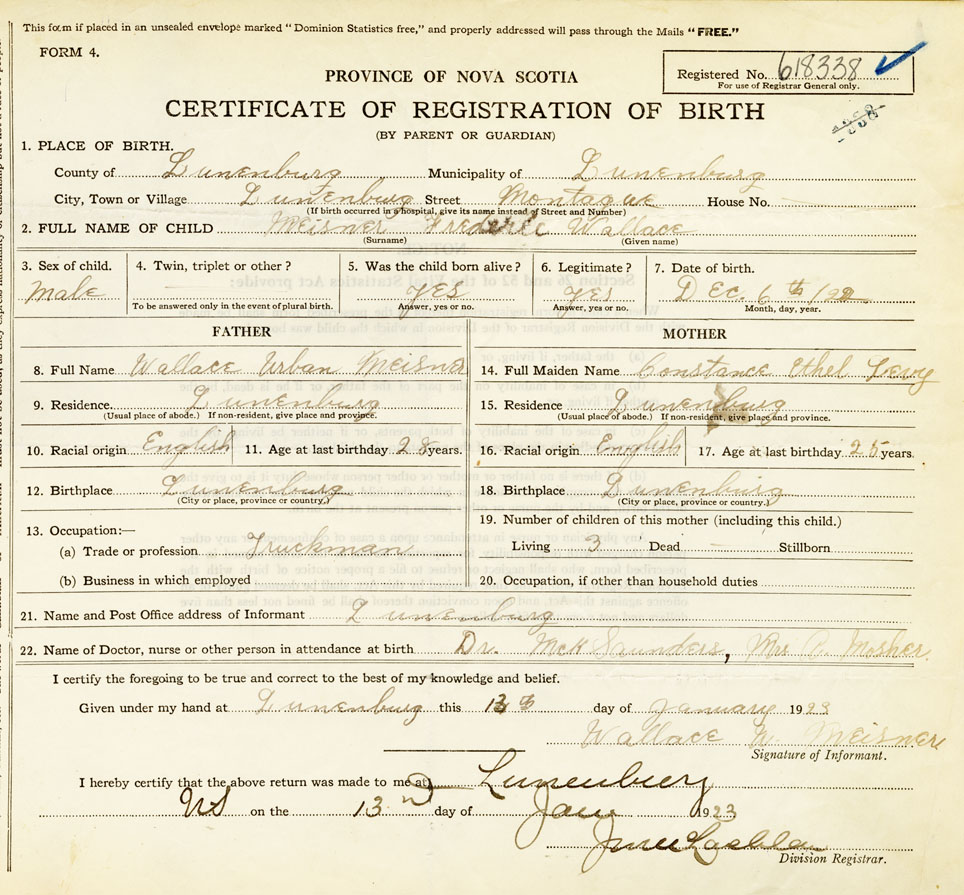 This form if placed in an unsealed envelope marked "Dominion Statistics free," and properly addressed will pass through the Mails "FREE."
FORM 4.
Registered No. 618338
For use of Registrar General only.
PROVINCE OF NOVA SCOTIA
CERTIFICATE OF REGISTRATION OF BIRTH
(BY PARENT OR GUARDIAN)
1. PLACE OF BIRTH.
County of Lunenburg Municipality of Lunenburg
City, Town or Village Lunenburg Street Montague House No.
(If birth occurred in a hospital, give its name instead of Street and Number)
2. FULL NAME OF CHILD Meisner Frederic Wallace
(Surname) (Given name)
3. Sex of child. 4. Twin, triplet or other? 5. Was the child born alive? 6. Legitimate? 7. Date of birth.
Male yes yes Dec. 6th 1922
To be answered only in the event of plural birth. Answer, yes or no. Answer, yes or no. Month, day, year.
FATHER MOTHER
8. Full Name Wallace Urban Meisner 14. Full Maiden Name Constance Ethel Levy
9. Residence Lunenburg 15. Residence Lunenburg
(Usual place of abode.) If non-resident, give place and province. (Usual place of abode.) If non-resident, give place and province.
10. Racial origin English 11. Age at last birthday 28 years. 16. Racial origin English 17. Age at last birthday 25 years.
12. Birthplace Lunenburg 18. Birthplace Lunenburg
(City or place, province or country.) (City or place, province or country.)
13. Occupation:— 19. Number of children of this mother (including this child.)
(a) Trade or profession Truckman Living 3 Dead — Stillborn
(b) Business in which employed 20. Occupation, if other than household duties
21. Name and Post Office address of Informant Lunenburg
22. Name of Doctor, nurse or other person in attendance at birth Dr. McK Saunders, Mrs P. Mosher.
I certify the foregoing to be true and correct to the best of my knowledge and belief.
Given under my hand at Lunenburg this 13th day of January 1923
Wallace U. Meisner
Signature of Informant.
I hereby certify that the above return was made to me at Lunenburg
NS on the 13 day of Jan 1923
Division Registrar.